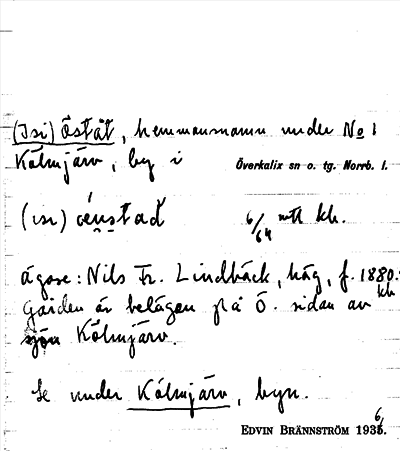 (Isi) Öståt, hemmansnamn under No 1
Kölmjärv, by i Överkalix sn o. tg. Norrb. l.
(isi) 6/64 mtl kr.
ägare: Nils Fr. Lindbäck, häg, f. 1880. kh
Gården är belägen på Ö. sidan av
sjön Kölmjärv.
Se under Kölmjärv, byn.
EDVIN BRÄNNSTRÖM 1936.